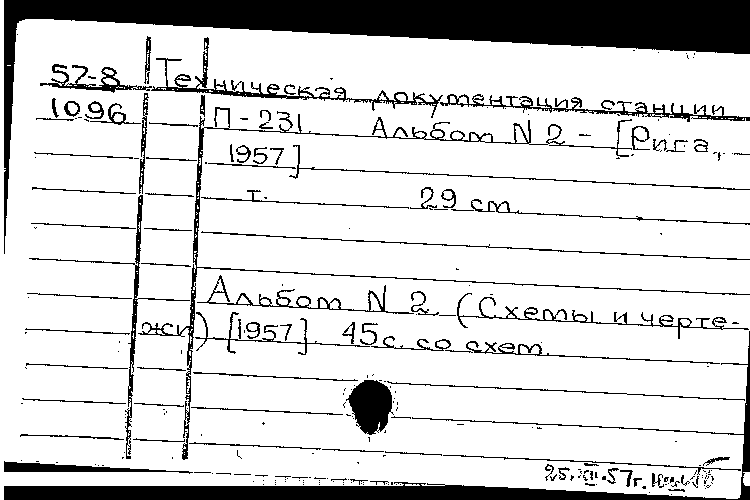 57-8 Техническая документация станции
1096 П-231. Альбом N 2 - [Рига,
1957].
т. 29 см.
Альбом N 2. (Схемы и черте-
жи) [1957]. 45 с. со схем.
25.XII.57г.